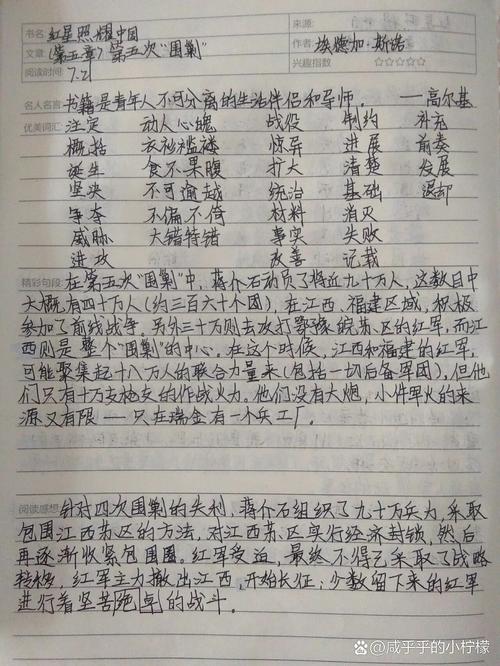 书名: 红星照耀中国 来源:
文章: (第五章) 第五次"围剿" 作者: 埃德加·斯诺
阅读时间: 7.21 兴趣指数 ☆☆☆☆☆
名人名言 书籍是青年人不可分离的生活伴侣和导师. ——高尔基
优美词汇: 注定 动人心魄 战役 制约 补充
概括 衣衫褴褛 惊异 进展 前奏
诞生 食不果腹 扩大 清楚 发展
坚决 不可逾越 统治 基础 退却
争夺 不偏不倚 材料 消灭
威胁 大错特错 事实 失败
进攻 改善 记载
精彩句段: 在第五次"围剿"中, 蒋介石动员了将近九十万人, 这数目中
大概有四十万人(约三百六十个团), 在江西、福建区域, 积极
参加了前线战争. 另外三十万则去攻打鄂豫皖苏区的红军, 而江
西则是整个"围剿"的中心. 在这个时候, 江西和福建的红军,
可能聚集起十八万人的联合力量来(包括一切后备军团), 但他
们只有十万支枪支的作战火力. 他们没有大炮, 小件军火的来
源又有限——只在瑞金有一个兵工厂.
阅读感想: 针对四次围剿的失利, 蒋介石组织了九十万兵力, 采取
包围江西苏区的方法, 对江西苏区实行经济封锁, 然后
再逐渐收紧包围圈. 红军受迫, 最终不得已采取了战略
转移, 红军主力撤出江西, 开始长征; 少数留下来的红军
进行着坚苦绝卓的战斗.
@咸乎乎的小柠檬